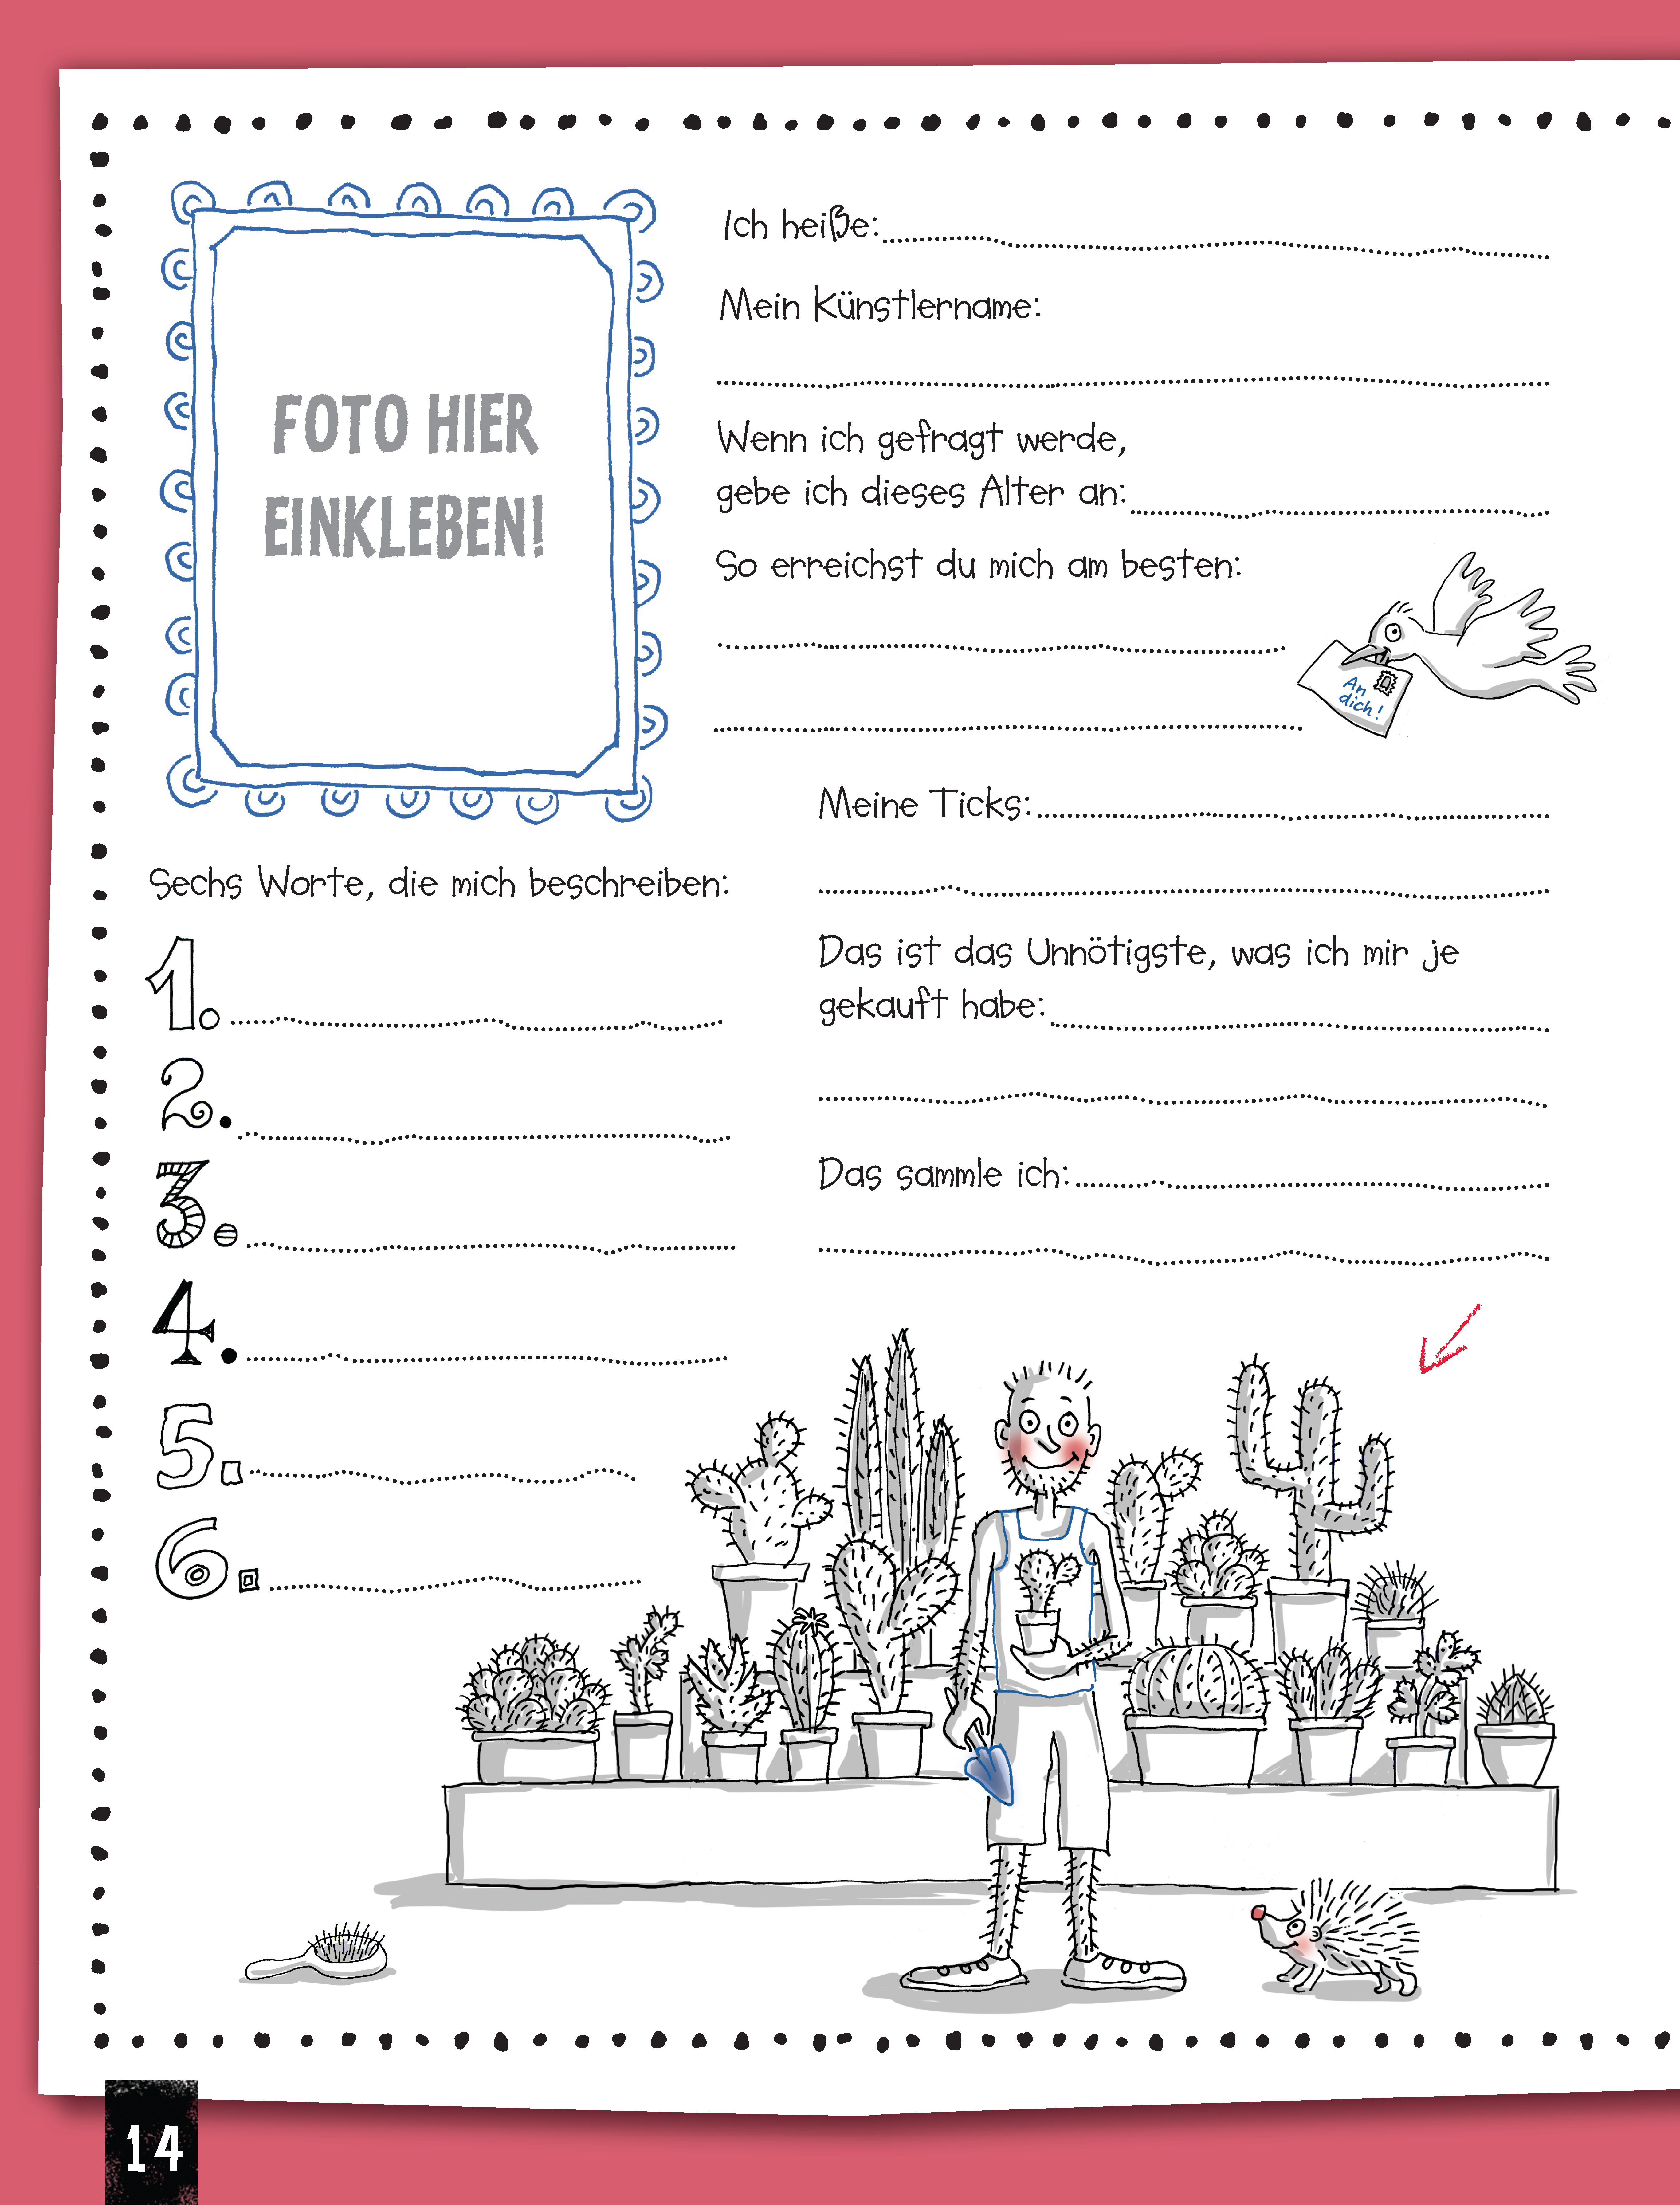 FOTO HIER
EINKLEBEN!
Ich heiße:
Mein Künstlername:
Wenn ich gefragt werde,
gebe ich dieses Alter an:
So erreichst du mich am besten:
An
dich!
Meine Ticks:
Sechs Worte, die mich beschreiben:
1.
2.
3.
4.
5.
6.
Das ist das Unnötigste, was ich mir je
gekauft habe:
Das sammle ich:
14